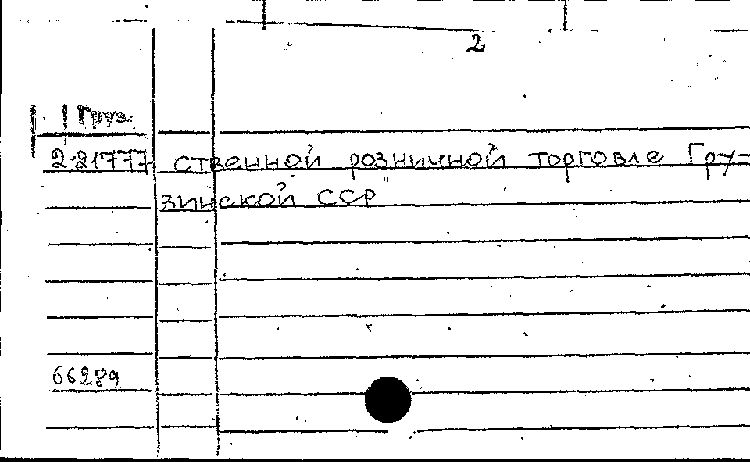 2
Груз.
2-21777 ственной розничной торговле Гру-
зинской ССР"
66289